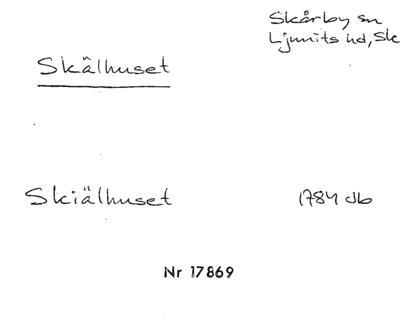 Skårby sn
Ljunits hd, Sk
Skälhuset
Skiälhuset 1784 db
Nr 17869